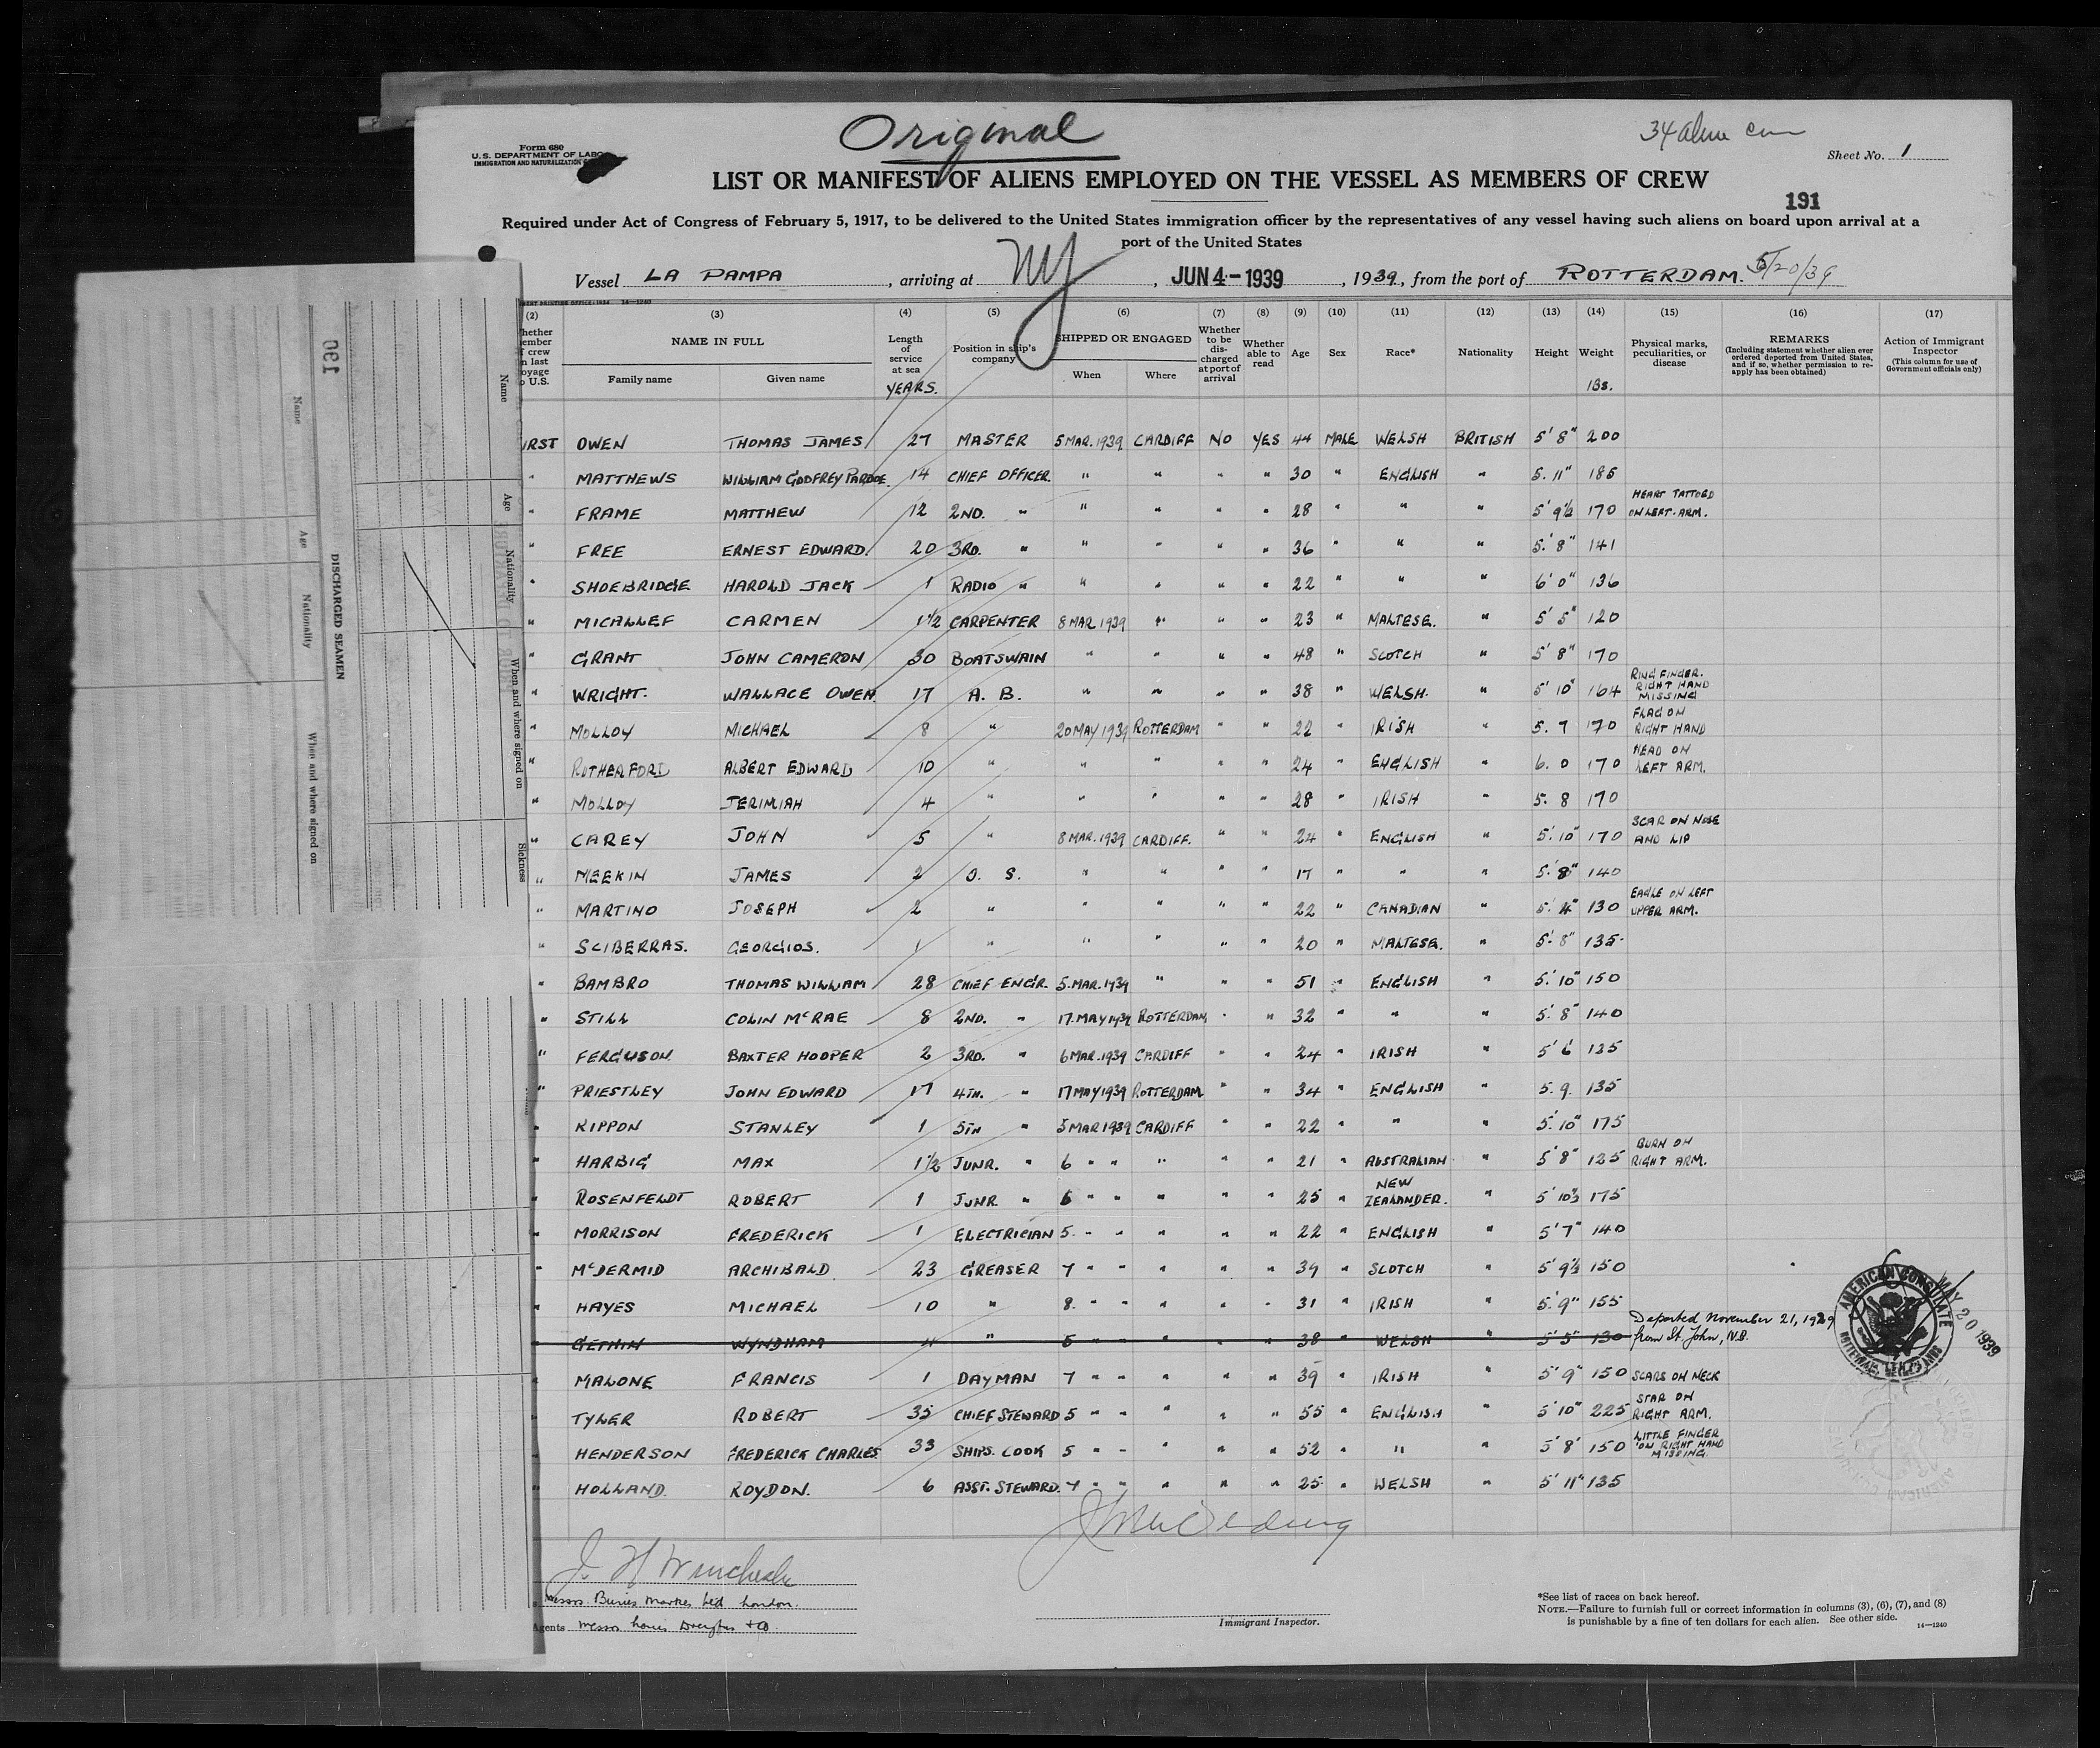 Original
34 alien
Form 680
U.S. DEPARTMENT OF LABOR
IMMIGRATION AND NATURALIZATION
Sheet No. 1
LIST OR MANIFEST OF ALIENS EMPLOYED ON THE VESSEL AS MEMBERS OF CREW
191
Required under Act of Congress of February 5, 1917, to be delivered to the United States immigration officer by the representatives of any vessel having such aliens on board upon arrival at a
port of the United States
Vessel LA PAMPA, arriving at NY, JUN 4-1939, 1939, from the port of ROTTERDAM. 5/20/39
14-1240
(2) (3) (4) (5) (6) (7) (8) (9) (10) (11) (12) (13) (14) (15) (16) (17)
hether ember f crew n last oyage o U.S.
NAME IN FULL
Family name Given name
Length of service at sea
YEARS.
Position in ship's company
SHIPPED OR ENGAGED
When Where
Whether to be discharged at port of arrival
Whether able to read
Age
Sex
Race*
Nationality
Height
Weight
lbs.
Physical marks, peculiarities, or disease
REMARKS
(Including statement whether alien ever ordered deported from United States, and if so, whether permission to reapply has been obtained)
Action of Immigrant Inspector
(This column for use of Government officials only)
IRST OWEN THOMAS JAMES 27 MASTER 5 MAR. 1939 CARDIFF NO YES 44 MALE WELSH BRITISH 5' 8" 200
" MATTHEWS WILLIAM GODFREY PARDOE. 14 CHIEF OFFICER. " " " " 30 " ENGLISH " 5. 11" 185
" FRAME MATTHEW 12 2ND. " " " " " 28 " " " 5' 9½ 170 HEART TATTOED ON LEFT. ARM.
" FREE ERNEST EDWARD. 20 3RD. " " " " " 36 " " " 5.' 8" 141
" SHOEBRIDGE HAROLD JACK 1 RADIO " " " " " 22 " " " 6' 0" 136
" MICALLEF CARMEN 1½ CARPENTER 8 MAR 1939 " " " 23 " MALTESE. " 5' 5" 120
" GRANT JOHN CAMERON 30 BOATSWAIN " " " " 48 " SCOTCH " 5' 8" 170
" WRIGHT. WALLACE OWEN. 17 A. B. " " " " 38 " WELSH. " 5' 10" 164 RING FINGER. RIGHT HAND MISSING
" MOLLOY MICHAEL 8 " 20 MAY 1939 ROTTERDAM " " 22 " IRISH " 5. 7 170 FLAG ON RIGHT HAND
" RUTHERFORD ALBERT EDWARD 10 " " " " " 24 " ENGLISH " 6. 0 170 HEAD ON LEFT ARM.
" MOLLOY JERIMIAH 4 " " " " " 28 " IRISH " 5. 8 170
" CAREY JOHN 5 " 8 MAR. 1939 CARDIFF. " " 24 " ENGLISH " 5.' 10" 170 SCAR ON NOSE AND LIP
" MEEKIN JAMES 2 O. S. " " " " 17 " " " 5.' 8" 140
" MARTINO JOSEPH 2 " " " " " 22 " CANADIAN " 5.' 4" 130 EAGLE ON LEFT UPPER ARM.
" SCIBERRAS. GEORGIOS. 1 " " " " " 20 " MALTESE. " 5.' 8" 135
" BAMBRO THOMAS WILLIAM 28 CHIEF ENGR. 5. MAR. 1939 " " " 51 " ENGLISH " 5.' 10" 150
" STILL COLIN McRAE 8 2ND. " 17. MAY 1939 ROTTERDAM " " 32 " " " 5.' 8" 140
" FERGUSON BAXTER HOOPER 2 3RD. " 6 MAR. 1939 CARDIFF " " 24 " IRISH " 5' 6' 125
" PRIESTLEY JOHN EDWARD 17 4TH. " 17 MAY 1939 ROTTERDAM " " 34 " ENGLISH " 5. 9. 135
" KIPPON STANLEY 1 5TH " 5 MAR 1939 CARDIFF " " 22 " " " 5.' 10" 175
" HARBIG MAX 1½ JUNR. " 6 " " " " " 21 " AUSTRALIAN " 5' 8" 125 BURN ON RIGHT ARM.
" ROSENFELDT ROBERT 1 JUNR " 6 " " " " " 25 " NEW ZEALANDER. " 5' 10½ 175
" MORRISON FREDERICK 1 ELECTRICIAN 5. " " " " " 22 " ENGLISH " 5' 7" 140
" McDERMID ARCHIBALD 23 GREASER 7 " " " " " 39 " SCOTCH " 5' 9½ 150
" HAYES MICHAEL 10 " 8. " " " " " 31 " IRISH " 5.' 9" 155
" GETHIN WYNDHAM 4 " 5 " " " " " 38 " WELSH " 5' 5" 130 Deported November 21, 1929 from St. John, N.B.
" MALONE FRANCIS 1 DAYMAN 7 " " " " " 39 " IRISH " 5' 9" 150 SCARS ON NECK
" TYLER ROBERT 35 CHIEF STEWARD 5 " " " " " 55 " ENGLISH " 5' 10" 225 STAR ON RIGHT ARM.
" HENDERSON FREDERICK CHARLES. 33 SHIPS. COOK 5 " " " " " 52 " " " 5' 8' 150 LITTLE FINGER ON RIGHT HAND MISSING.
" HOLLAND. ROYDON. 6 ASST. STEWARD. 7 " " " " " 25 " WELSH " 5' 11" 135
AMERICAN CONSULATE
MAY 20 1939
J. H Winchester
Messrs. Buries Markes Ltd London.
Agents Messrs Louis Dreyfus & Co
Immigrant Inspector.
*See list of races on back hereof.
NOTE.—Failure to furnish full or correct information in columns (3), (6), (7), and (8)
is punishable by a fine of ten dollars for each alien. See other side.
14—1240
190
DISCHARGED SEAMEN
Name
Age
Nationality
When and where signed on
Name
Age
Nationality
When and where signed on
Sickness